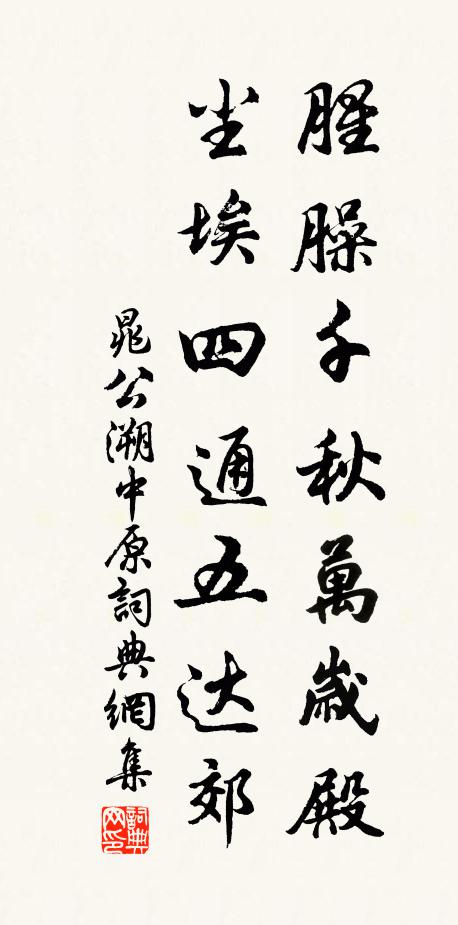 腥臊千秋萬歲殿
尘埃四通五达郊
晁公溯中原詞典網集
詞典网印